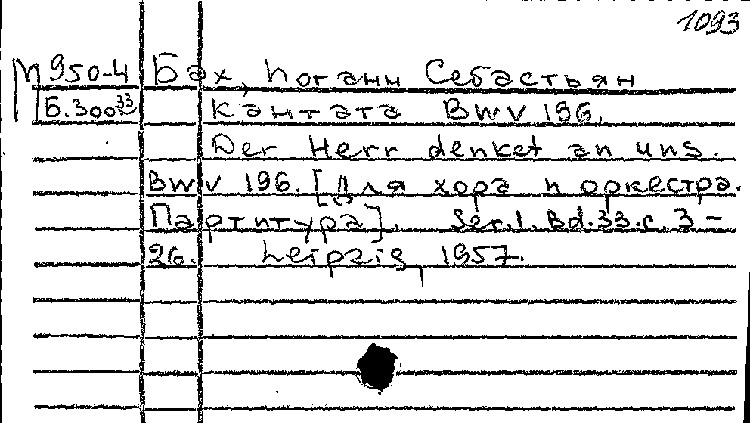 1093
М950-4 Бах, Иоганн Себастьян
Б.300 33 Кантата BWV 196.
Der Herr denket an uns.
BWV 196. [Для хора и оркестра.
Партитура]. Ser.1. Bd.33. с. 3-
26. Leipzig, 1957.